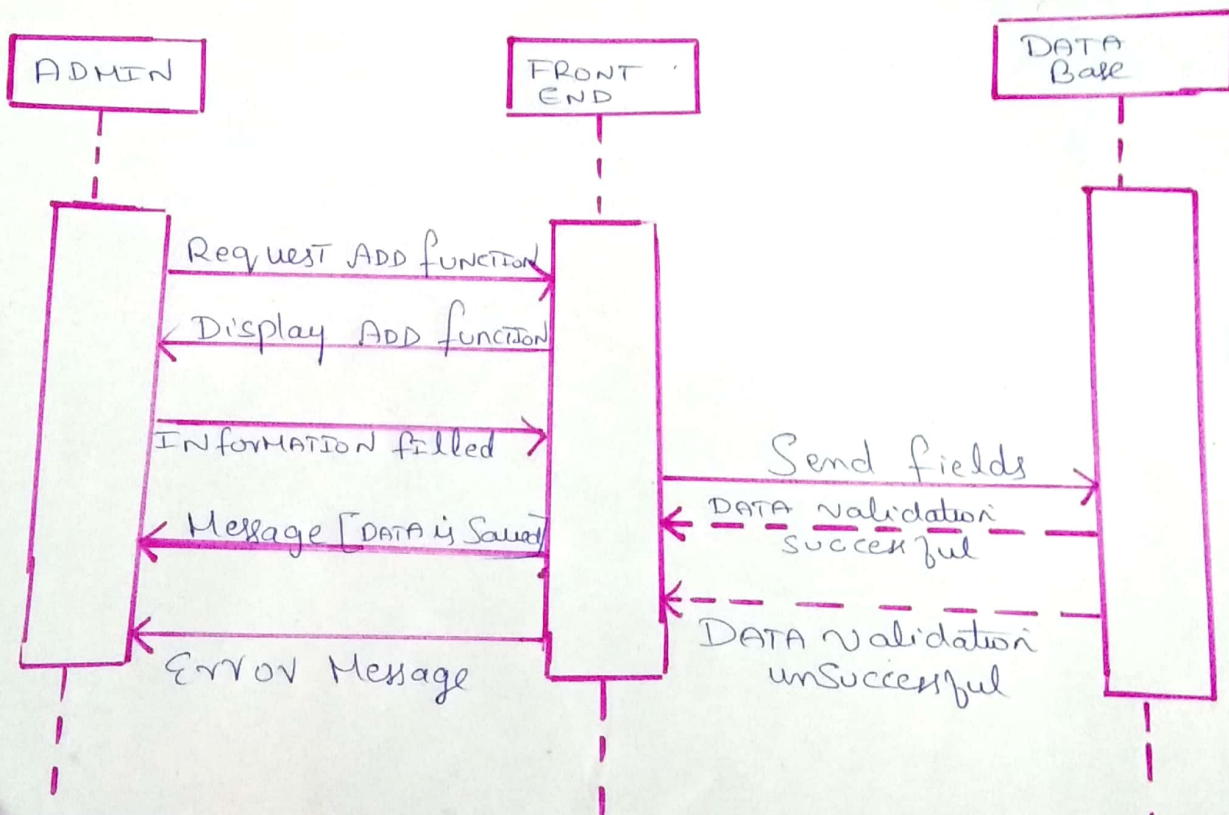 ADMIN
FRONT
END
DATA
Base
Request ADD function
Display ADD function
INforMATION filled
Send fields
DATA validation
successful
Message [DATA is Saved]
Error Message
DATA validation
unSuccessful